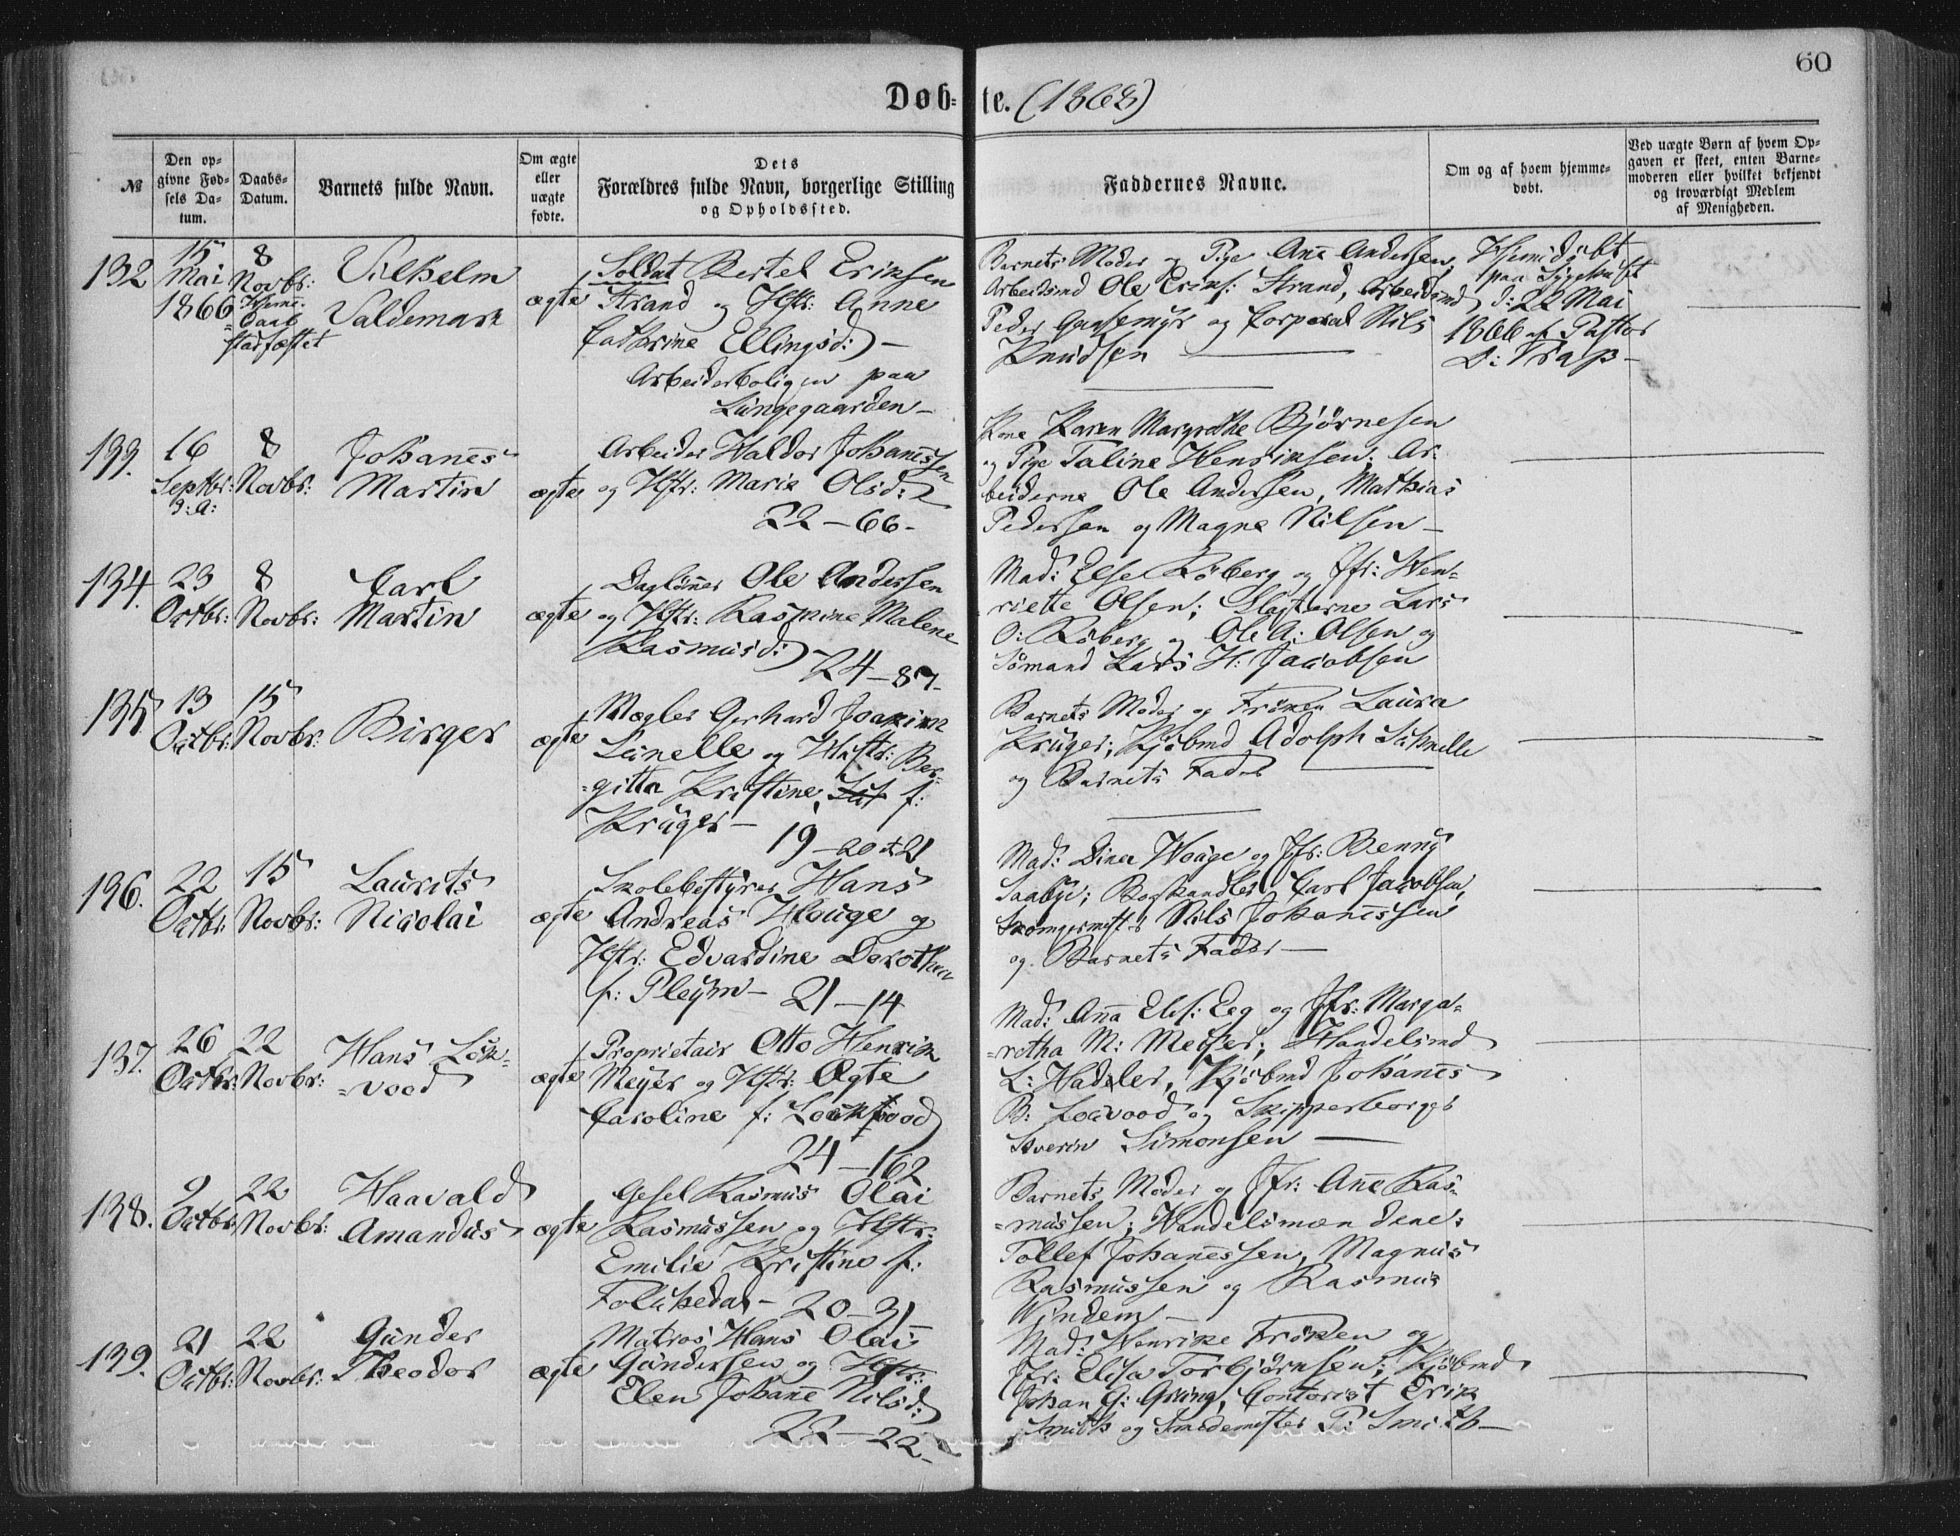 60
Døb=te. (1868)
№
Den op-
givne Fød-
sels Da-
tum.
Daabs-
Datum.
Barnets fulde Navn.
Om ægte
eller
uægte
fødte.
Dets
Forældres fulde Navn, borgerlige Stilling
og Opholdssted.
Faddernes Navne.
Om og af hvem hjemme-
døbt.
Ved uægte Børn af hvem Op-
gaven er skeet, enten Barne-
moderen eller hvilket bekjendt
og troværdigt Medlem
af Menigheden.
132
15
Mai
1866
8
Novbr:
Hjemme-
Daab
stadfæstet
Vilhelm
Valdemar
ægte
Soldat Bertel Eriksen
Strand og Hstr: Anne
Cathrine Ellingsd:
Arbeiderboligen paa
Lungegaarden
Barnets Moder og Pige Aña Andersen,
Arbeidsmd Ole Eriks: Strand, Arbeidsmd
Peder Gaasemyr og Corporal Nils
Knudsen
Hjemmedøbt
paa Sygehuset
d: 22 Mai
1866 af Pastor
D: Trap
133.
16
Septbr:
8
Novbr:
Johañes
Martin
ægte
Arbeider Haldor Johañessen
og Hstr: Marie Olsd:
22-66-
Kone Karen Margrethe Bjørnesen
og Pige Taline Henriksen; Ar-
beiderne Ole Andersen, Mathias
Pedersen og Magne Nilsen
134.
23
Octbr:
8
Novbr:
Carl
Martin
ægte
Dagløñer Ole Andersen
og Hstr: Rasmine Malene
Rasmusd:
24-87-
Mad: Else Røberg og Jfr: Hen-
riette Olsen; Slagterne Lars
O: Røberg og Ole A: Olsen og
Sømand Lars H: Jacobsen
135
13
Octbr:
15
Novbr:
Birger
ægte
Mægler Gerhard Joakim
og Hustr: Ber-
gitta Kristine f:
Krüger
19-20+21
Barnets Moder og Frøken Laura
Krüger; Kjøbmd Adolph
og Barnets Fader
136.
22
Octbr:
15
Novbr:
Laurits
Nicolai
ægte
Skolebestyrer Hans
Andreas Houge og
Hstr: Edvardine Dorothea
f: Pleym
21-14
Mad: Dina Houge og Jfr: Benny
Saabye; Boghandler Carl Jacobsen,
Skomagermester Nils Johañessen
og Barnets Fader
137.
26
Octbr:
22
Novbr:
Hans Lok-
vood
ægte
Proprietair Otto Henrik
Meyer og Hstr: Ægte
Caroline f: Lockvood
24-162
Mad: Aña Elis: Eeg og Jfr: Marga-
retha M: Meyer; Handelsmd
L: Hadeler, Kjøbmd Johañes
B: Locvood og Skipperborger
Severin Simonsen
138.
9
Octbr:
22
Novbr:
Haavald
Amandus
ægte
Gesel Rasmus Olai
Rasmussen og Hstr:
Emilie Kristine f:
20-31
Barnets Moder og Jfr: Añe Ras-
mussen; Handelsmændene:
Tollef Johañessen, Magnus
Rasmussen og Rasmus
139.
21
Octbr:
22
Novbr:
Gunder
Theodor
ægte
Matros Hans Olai
Gundersen og Hstr:
Elen Johañe Nilsd:
22-22-
Mad: Henrike Frøken og
Jfr: Elisa Torbjørnsen; Kjøbmd
Johan G: Grung, Contorist Erik
Smith og Smedemester P: Smith